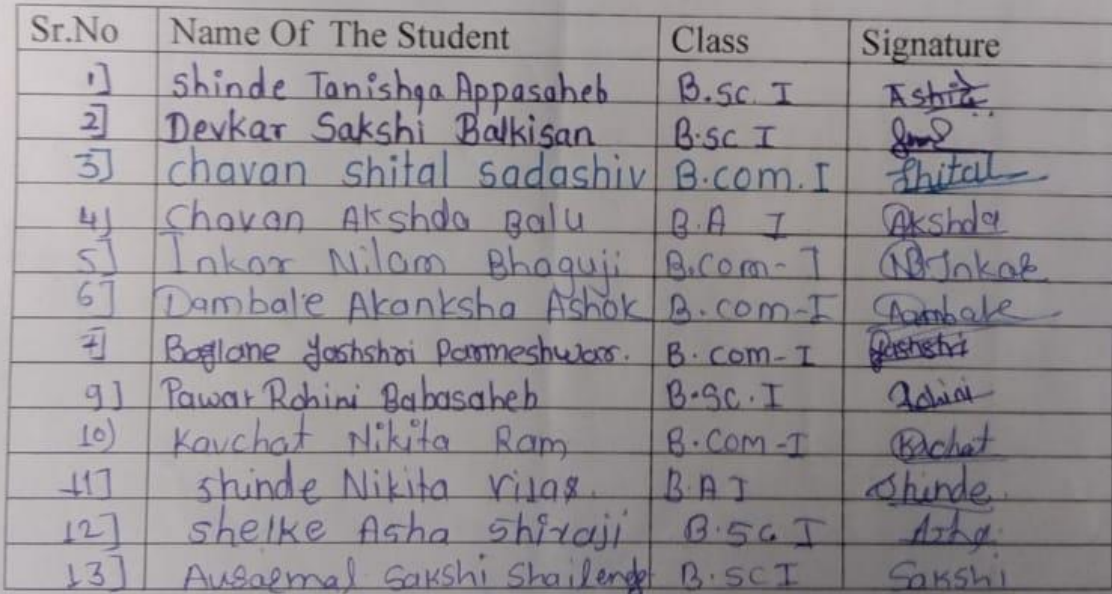 Sr.No Name Of The Student Class Signature
1] Shinde Tanishqa Appasaheb B.sc. I
2] Devkar Sakshi Balkisan B.sc I
3] chavan shital sadashiv B.com. I Shital
4] Chavan Akshda Balu B.A I Akshda
5] Inkar Nilam Bhaguji B.com-I NBInkar
6] Dambale Akanksha Ashok B.com-I Dambale
7] Yashshri Parmeshwar. B.com-I Yashshri
9] Pawar Rohini Babasaheb B.sc.I Rohini
10) Kavchat Nikita Ram B.com-I
11] shinde Nikita vilas. B.A I Shinde
12] shelke Asha Shivaji B.sc I Asha
13] Sakshi B.sc I Sakshi